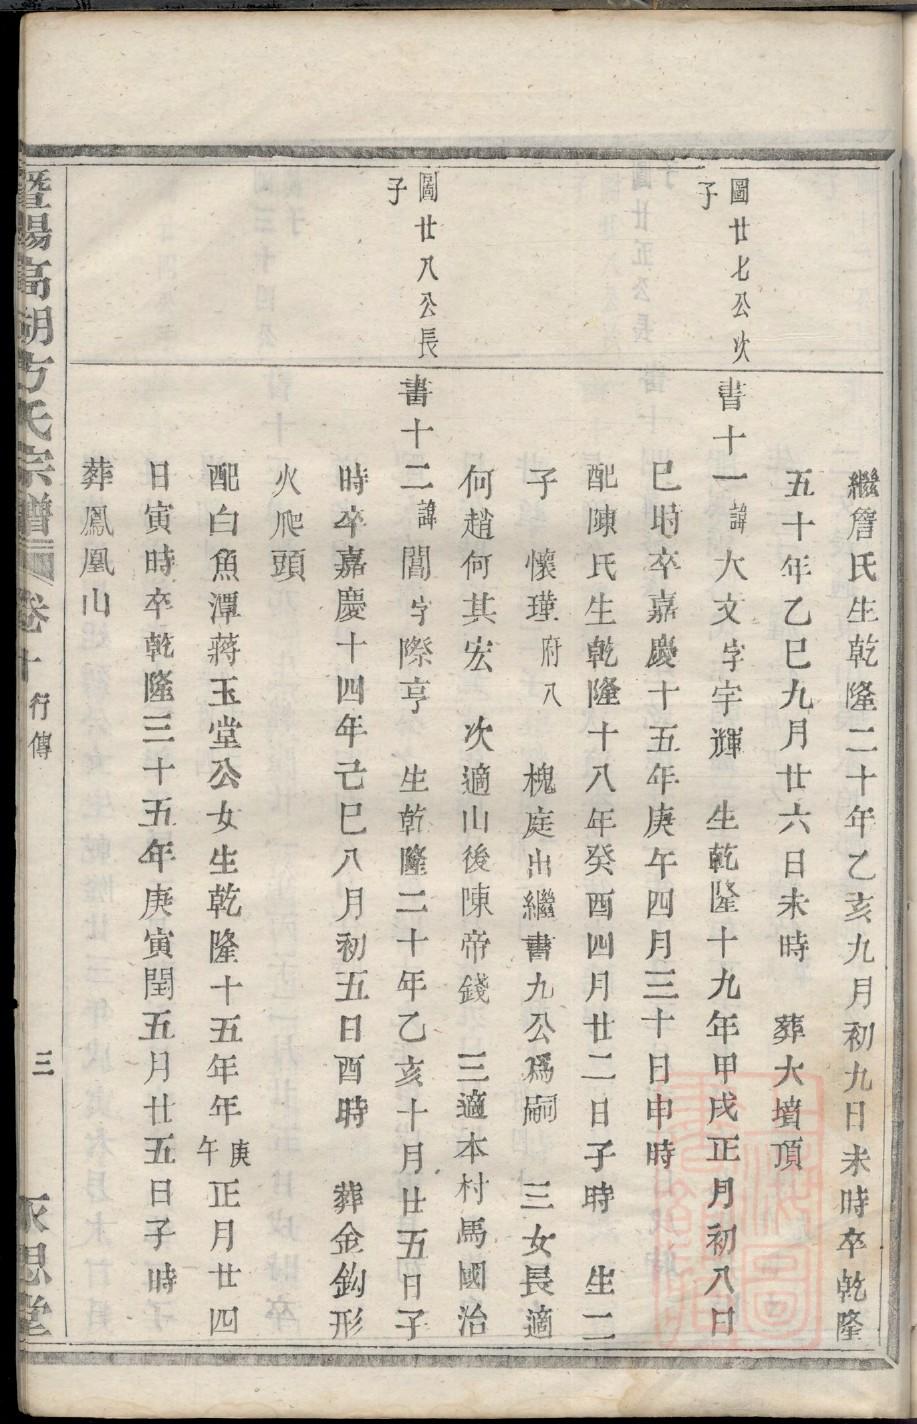 繼詹氏生乾隆二十年乙亥九月初九日未時卒乾隆
五十年乙巳九月廿六日未時 葬大墳頂
圖廿七公次
子
書十一諱大文字宇輝 生乾隆十九年甲戌正月初八日
巳時卒嘉慶十五年庚午四月三十日申時
配陳氏生乾隆十八年癸酉四月廿二日子時 生二
子 懷瑾府八 槐庭出繼書九公爲嗣 三女長適
何趙何其宏 次適山後陳帝錢 三適本村馬國治
圖廿八公長
子
書十二諱閶字際亨 生乾隆二十年乙亥十月廿五日子
時卒嘉慶十四年己巳八月初五日酉時 葬金鈎形
火爬頭
配白魚潭蔣玉堂公女生乾隆十五年年庚午正月廿四
日寅時卒乾隆三十五年庚寅閏五月廿五日子時
葬鳳凰山
暨陽高湖方氏宗譜 卷十 行傳 三 永思堂